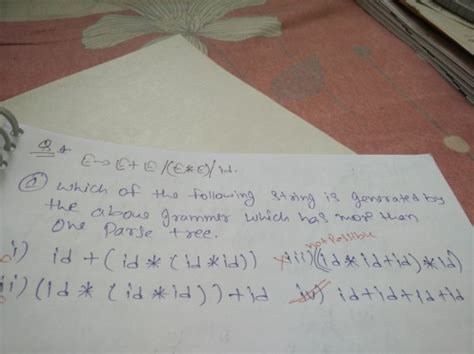 Q.1.
E→ E+ E /(E*E)/id.
(a) which of the following string is generated by
the above grammer which has more than
one Parse tree.
not Possible
i) id + (id * (id * id)) iii) ((id * id + id) * id)
ii) (id * (id * id)) + id iv) id + id + id + id